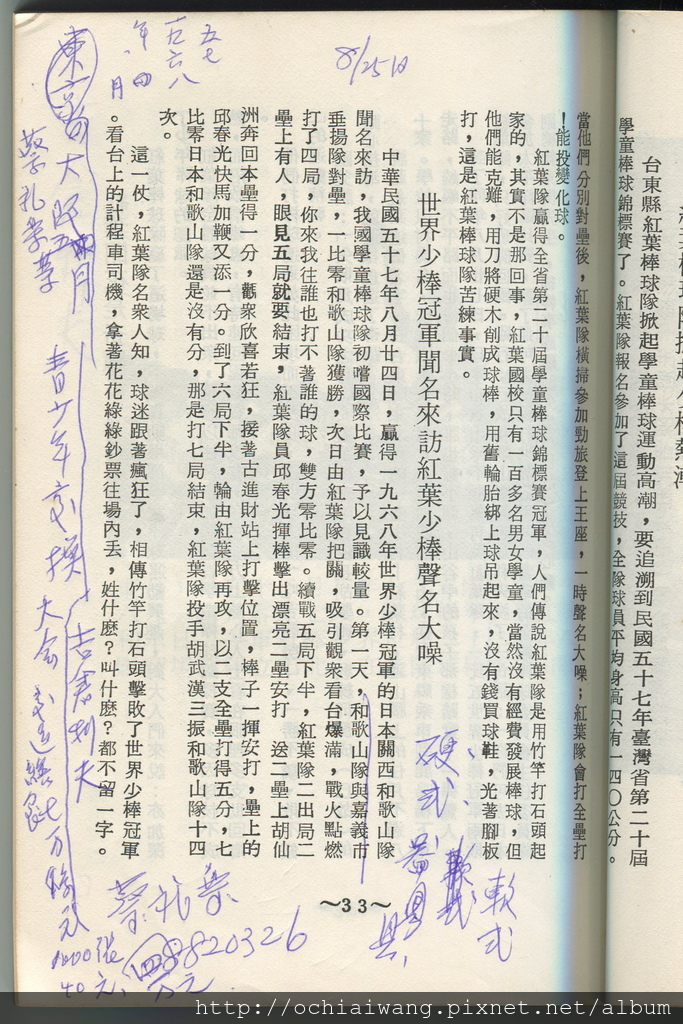 台東縣紅葉棒球隊掀起學童棒球運動高潮，要追溯到民國五十七年臺灣省第二十屆
學童棒球錦標賽了。紅葉隊報名參加了這屆競技，全隊球員平均身高只有一四〇公分。
當他們分別對壘後，紅葉隊橫掃參加勁旅登上王座，一時聲名大噪；紅葉隊會打全壘打
！能投變化球。
紅葉隊贏得全省第二十屆學童棒球錦標賽冠軍，人們傳說紅葉隊是用竹竿打石頭起
家的，其實不是那回事，紅葉國校只有一百多名男女學童，當然沒有經費發展棒球，但
他們能克難，用刀將硬木削成球棒，用舊輪胎綁上球吊起來，沒有錢買球鞋，光著腳板
打，這是紅葉棒球隊苦練事實。
世界少棒冠軍聞名來訪紅葉少棒聲名大噪
中華民國五十七年八月廿四日，贏得一九六八年世界少棒冠軍的日本關西和歌山隊
聞名來訪，我國學童棒球隊初嚐國際比賽，予以見識較量。第一天，和歌山隊與嘉義市
垂揚隊對壘，一比零和歌山隊獲勝，次日由紅葉隊把關，吸引觀衆看台爆滿，戰火點燃
打了四局，你來我往誰也打不著誰的球，雙方零比零。續戰五局下半，紅葉隊二出局二
壘上有人，眼見五局就要結束，紅葉隊員邱春光揮棒擊出漂亮二壘安打　送二壘上胡仙
洲奔回本壘得一分，觀衆欣喜若狂，接著古進財站上打擊位置，棒子一揮安打，壘上的
邱春光快馬加鞭又添一分。到了六局下半，輪由紅葉隊再攻，以二支全壘打得五分，七
比零日本和歌山隊還是沒有分，那是打七局結束，紅葉隊投手胡武漢三振和歌山隊十四
次。
這一仗，紅葉隊名衆人知，球迷跟著瘋狂了，相傳竹竿打石頭擊敗了世界少棒冠軍
。看台上的計程車司機，拿著花花綠綠鈔票往場內丟，姓什麼？叫什麼？都不留一字。
～33～
8/25日
五七
一九六八
年四
月
硬式、
軟式
8820326
青少年交換大会
http://ochiaiwang.pixnet.net/album